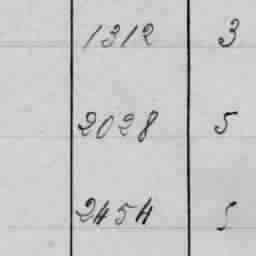 1312 3
2028 5
2454 5